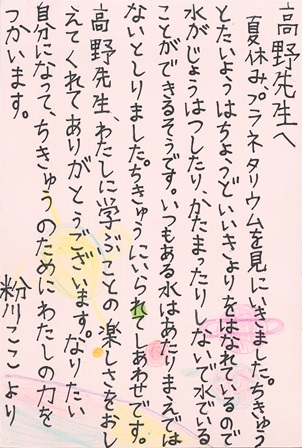 高野先生へ
夏休みプラネタリウムを見にいきました。ちきゅう
とたいようはちょうどいいきょりをはなれているので
水がじょうはつしたり、かたまったりしないで水でいる
ことができるそうです。いつもある水はあたりまえでは
ないとしりました。ちきゅうにいられてしあわせです。
高野先生、わたしに学ぶことの楽しさをおし
えてくれてありがとうございます。なりたい
自分になって、ちきゅうのためにわたしの力を
つかいます。
粉川ここより